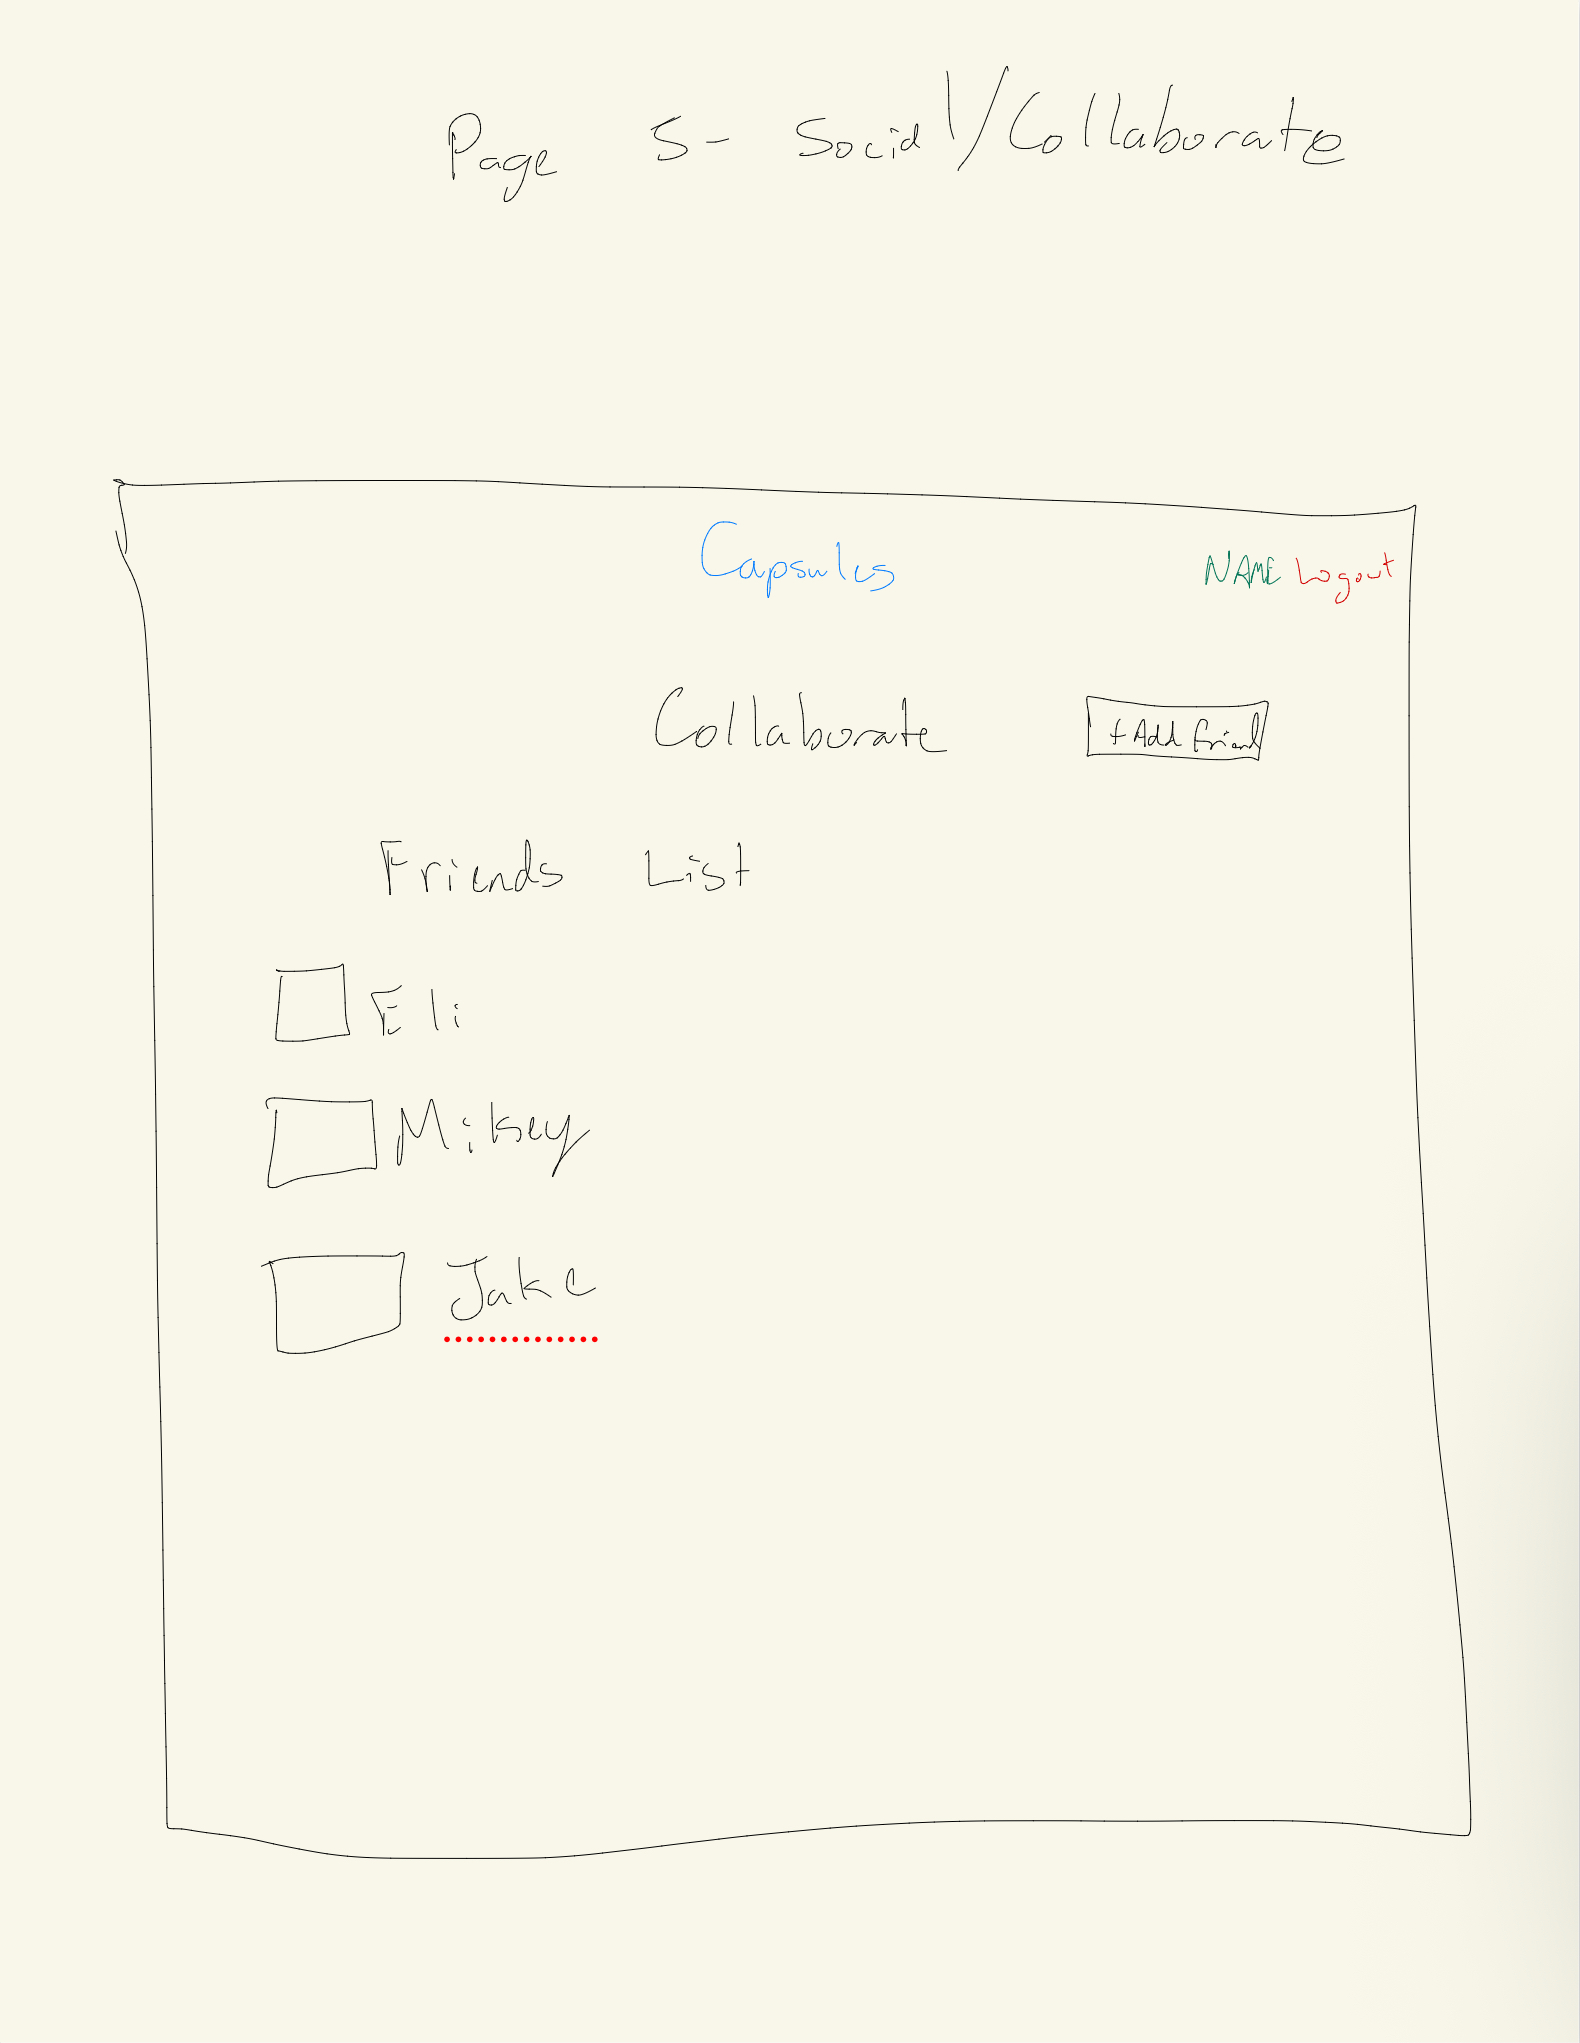 Page 5 - Social/Collaborate
Capsules
NAME Logout
Collaborate
+ Add friend
Friends List
Eli
Mikey
Jake